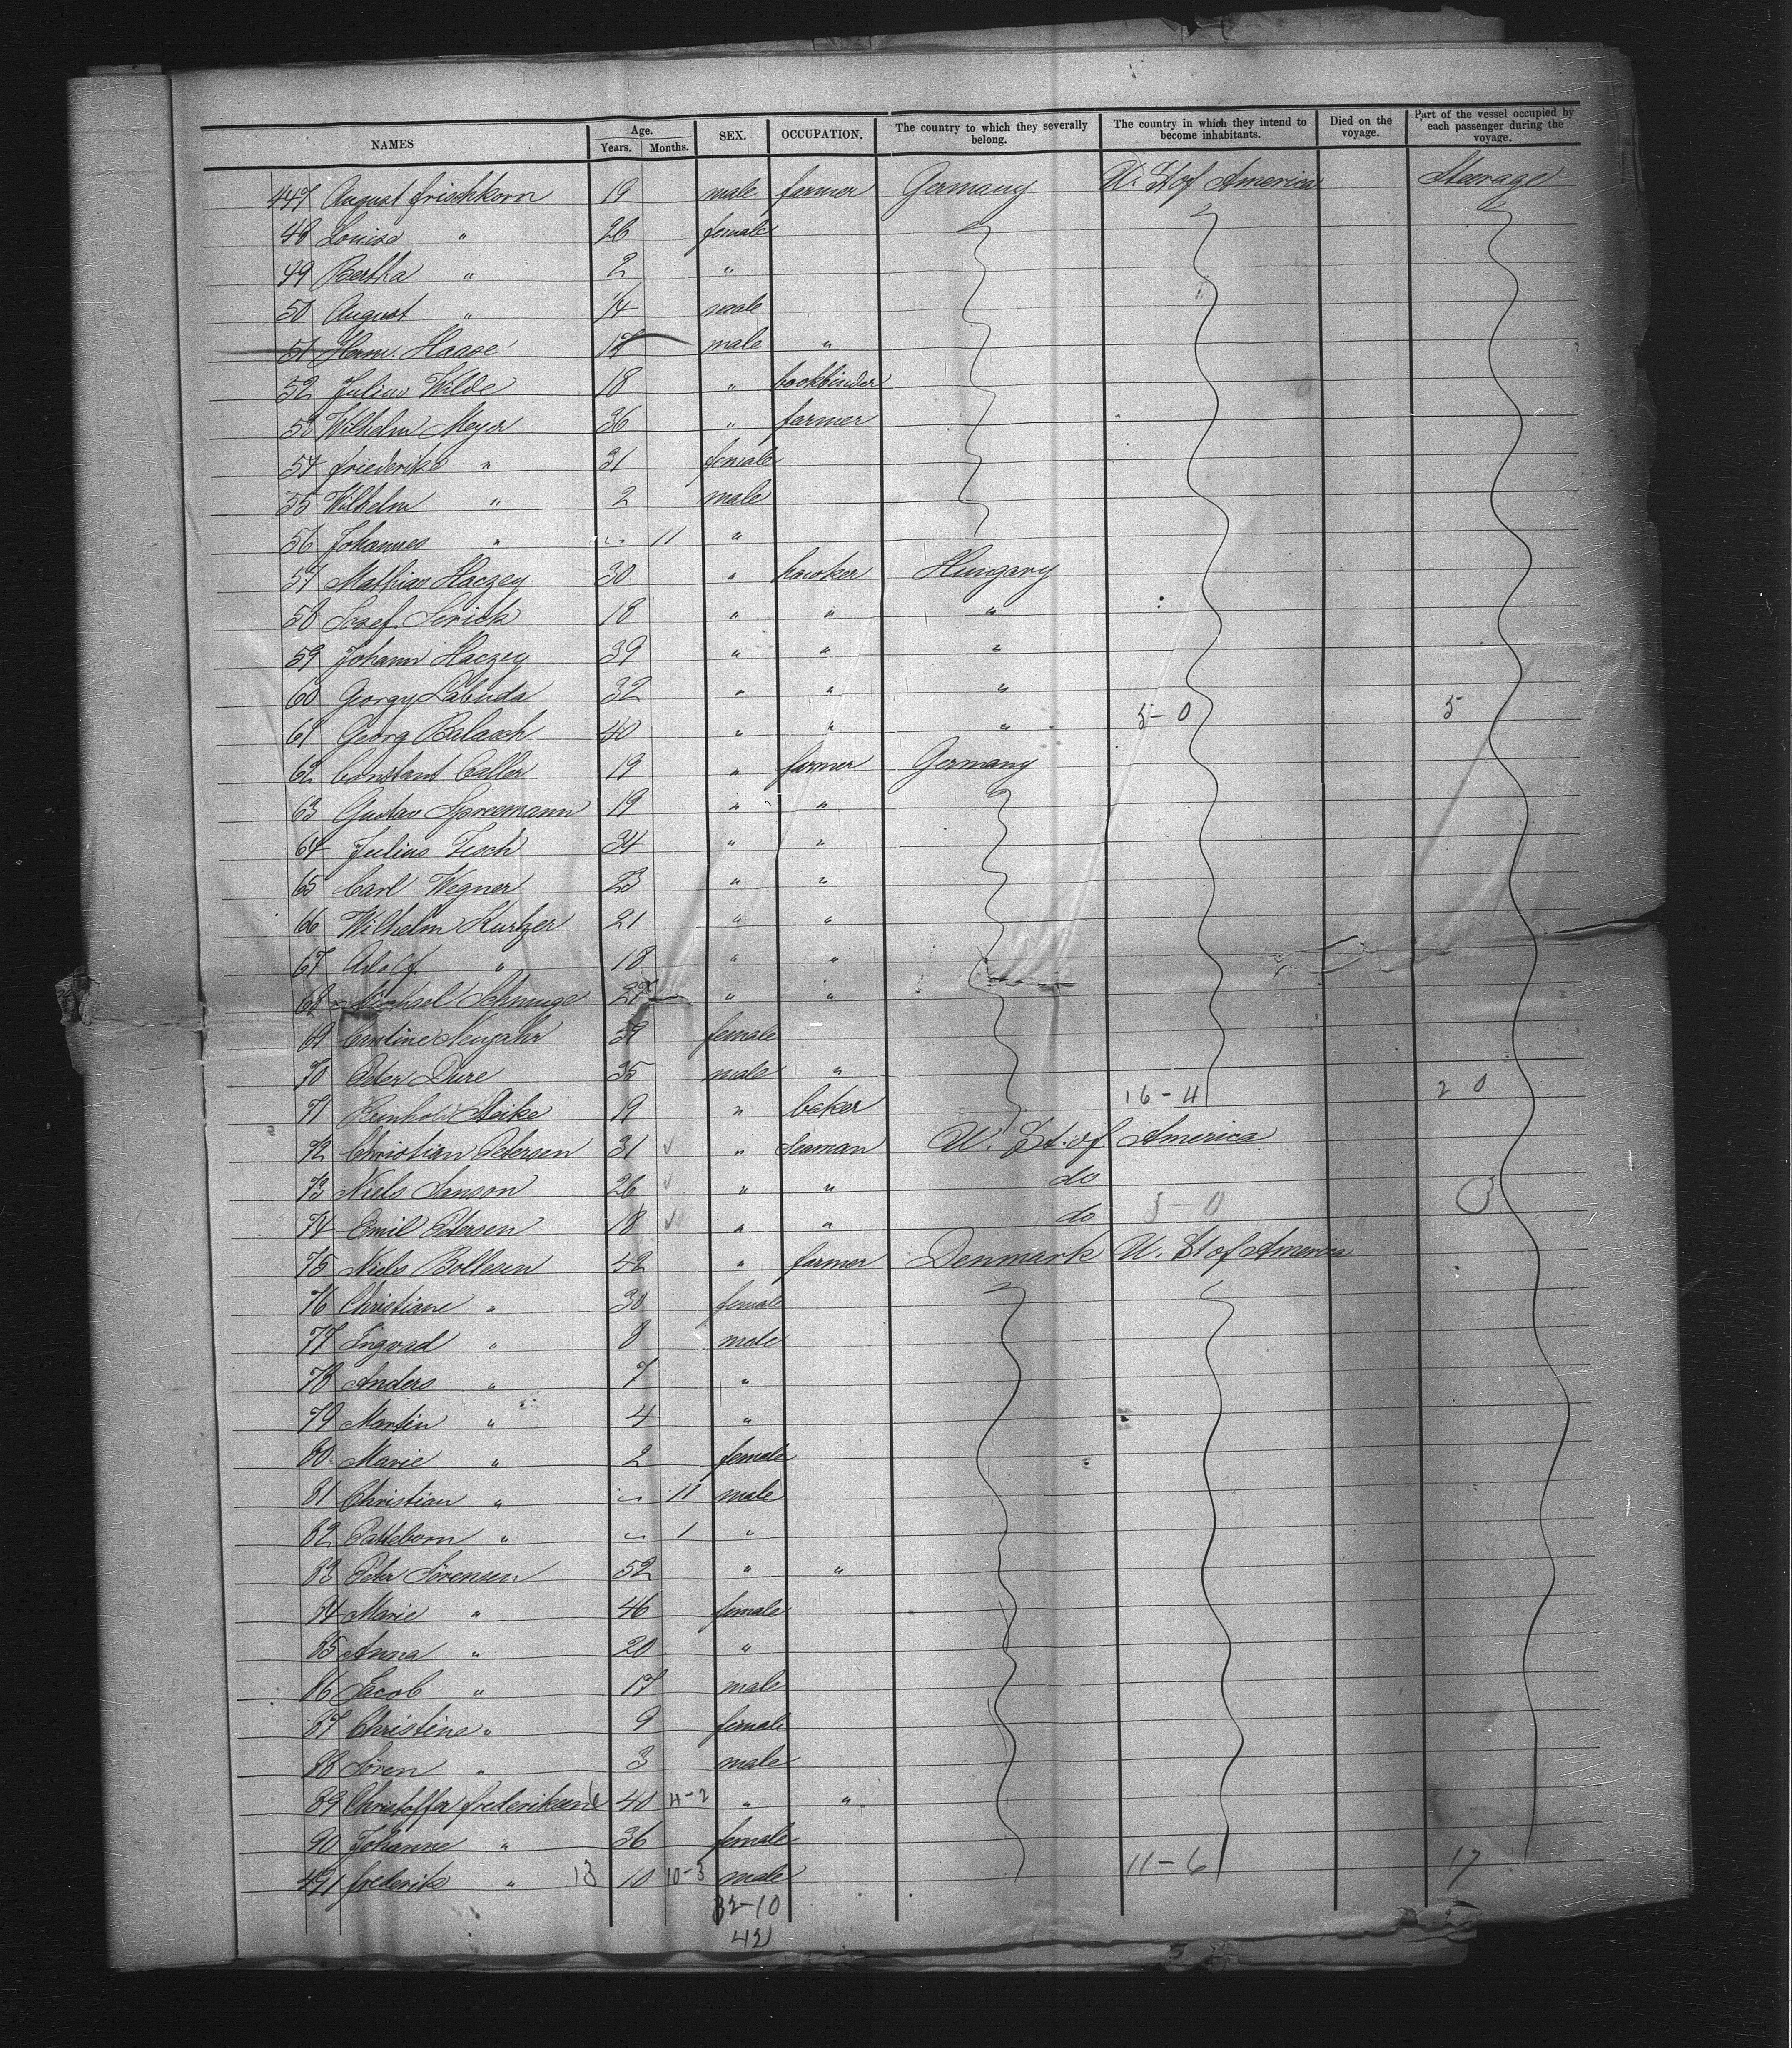 NAMES Age. Years. Months. SEX. OCCUPATION. The country to which they severally belong. The country in which they intend to become inhabitants. Died on the voyage. Part of the vessel occupied by each passenger during the voyage.
447 August Frischkorn 19 male farmer Germany U. St of America Steerage
48 Louise " 26 female
49 Bertha " 2 "
50 August " 14 male
51 Herm. Haase 17 male "
52 Julius Wilde 18 " bookbinder
53 Wilhelm Meyer 36 " farmer
54 Friederike " 31 female
55 Wilhelm " 2 male
56 Johannes " 11 "
57 Mathias Haczey 30 " hawker Hungary
58 Josef Serick 18 " " "
59 Johann Haczey 39 " " "
60 Georgy Labuda 32 " " "
61 Georg Balasch 40 " " " 5-0 5
62 Constant Caller 19 " farmer Germany
63 Gustav Spreemann 19 " "
64 Julius Tesch 34 " "
65 Carl Wegner 23 " "
66 Wilhelm Kurtzer 21 " "
67 Adolf " 18 " "
68 Michael Schmuge 27 " "
69 Caroline Neujahr 39 female
70 Peter Dure 35 male "
71 Reinhold Steike 19 " baker 16-4 20
72 Christian Petersen 31 " Seaman U. St. of America
73 Niels Janson 26 " " do
74 Emil Petersen 18 " " do 3-0 3
75 Niels Bollesen 42 " farmer Denmark U. St of America
76 Christiane " 30 female
77 Ingvad " 8 male
78 Anders " 7 "
79 Martin " 4 "
80 Marie " 2 female
81 Christian " 11 male
82 " 1 "
83 Peter Sörensen 52 " "
84 Marie " 46 female
85 Anna " 20 "
86 Jacob " 17 male
87 Christine " 9 female
88 Sören " 3 male
89 Christoffer Frederiksen 40 4-2 " "
90 Johanne " 36 female
491 Frederik " 13 10 10-3 male 11-6 17
32-10
42